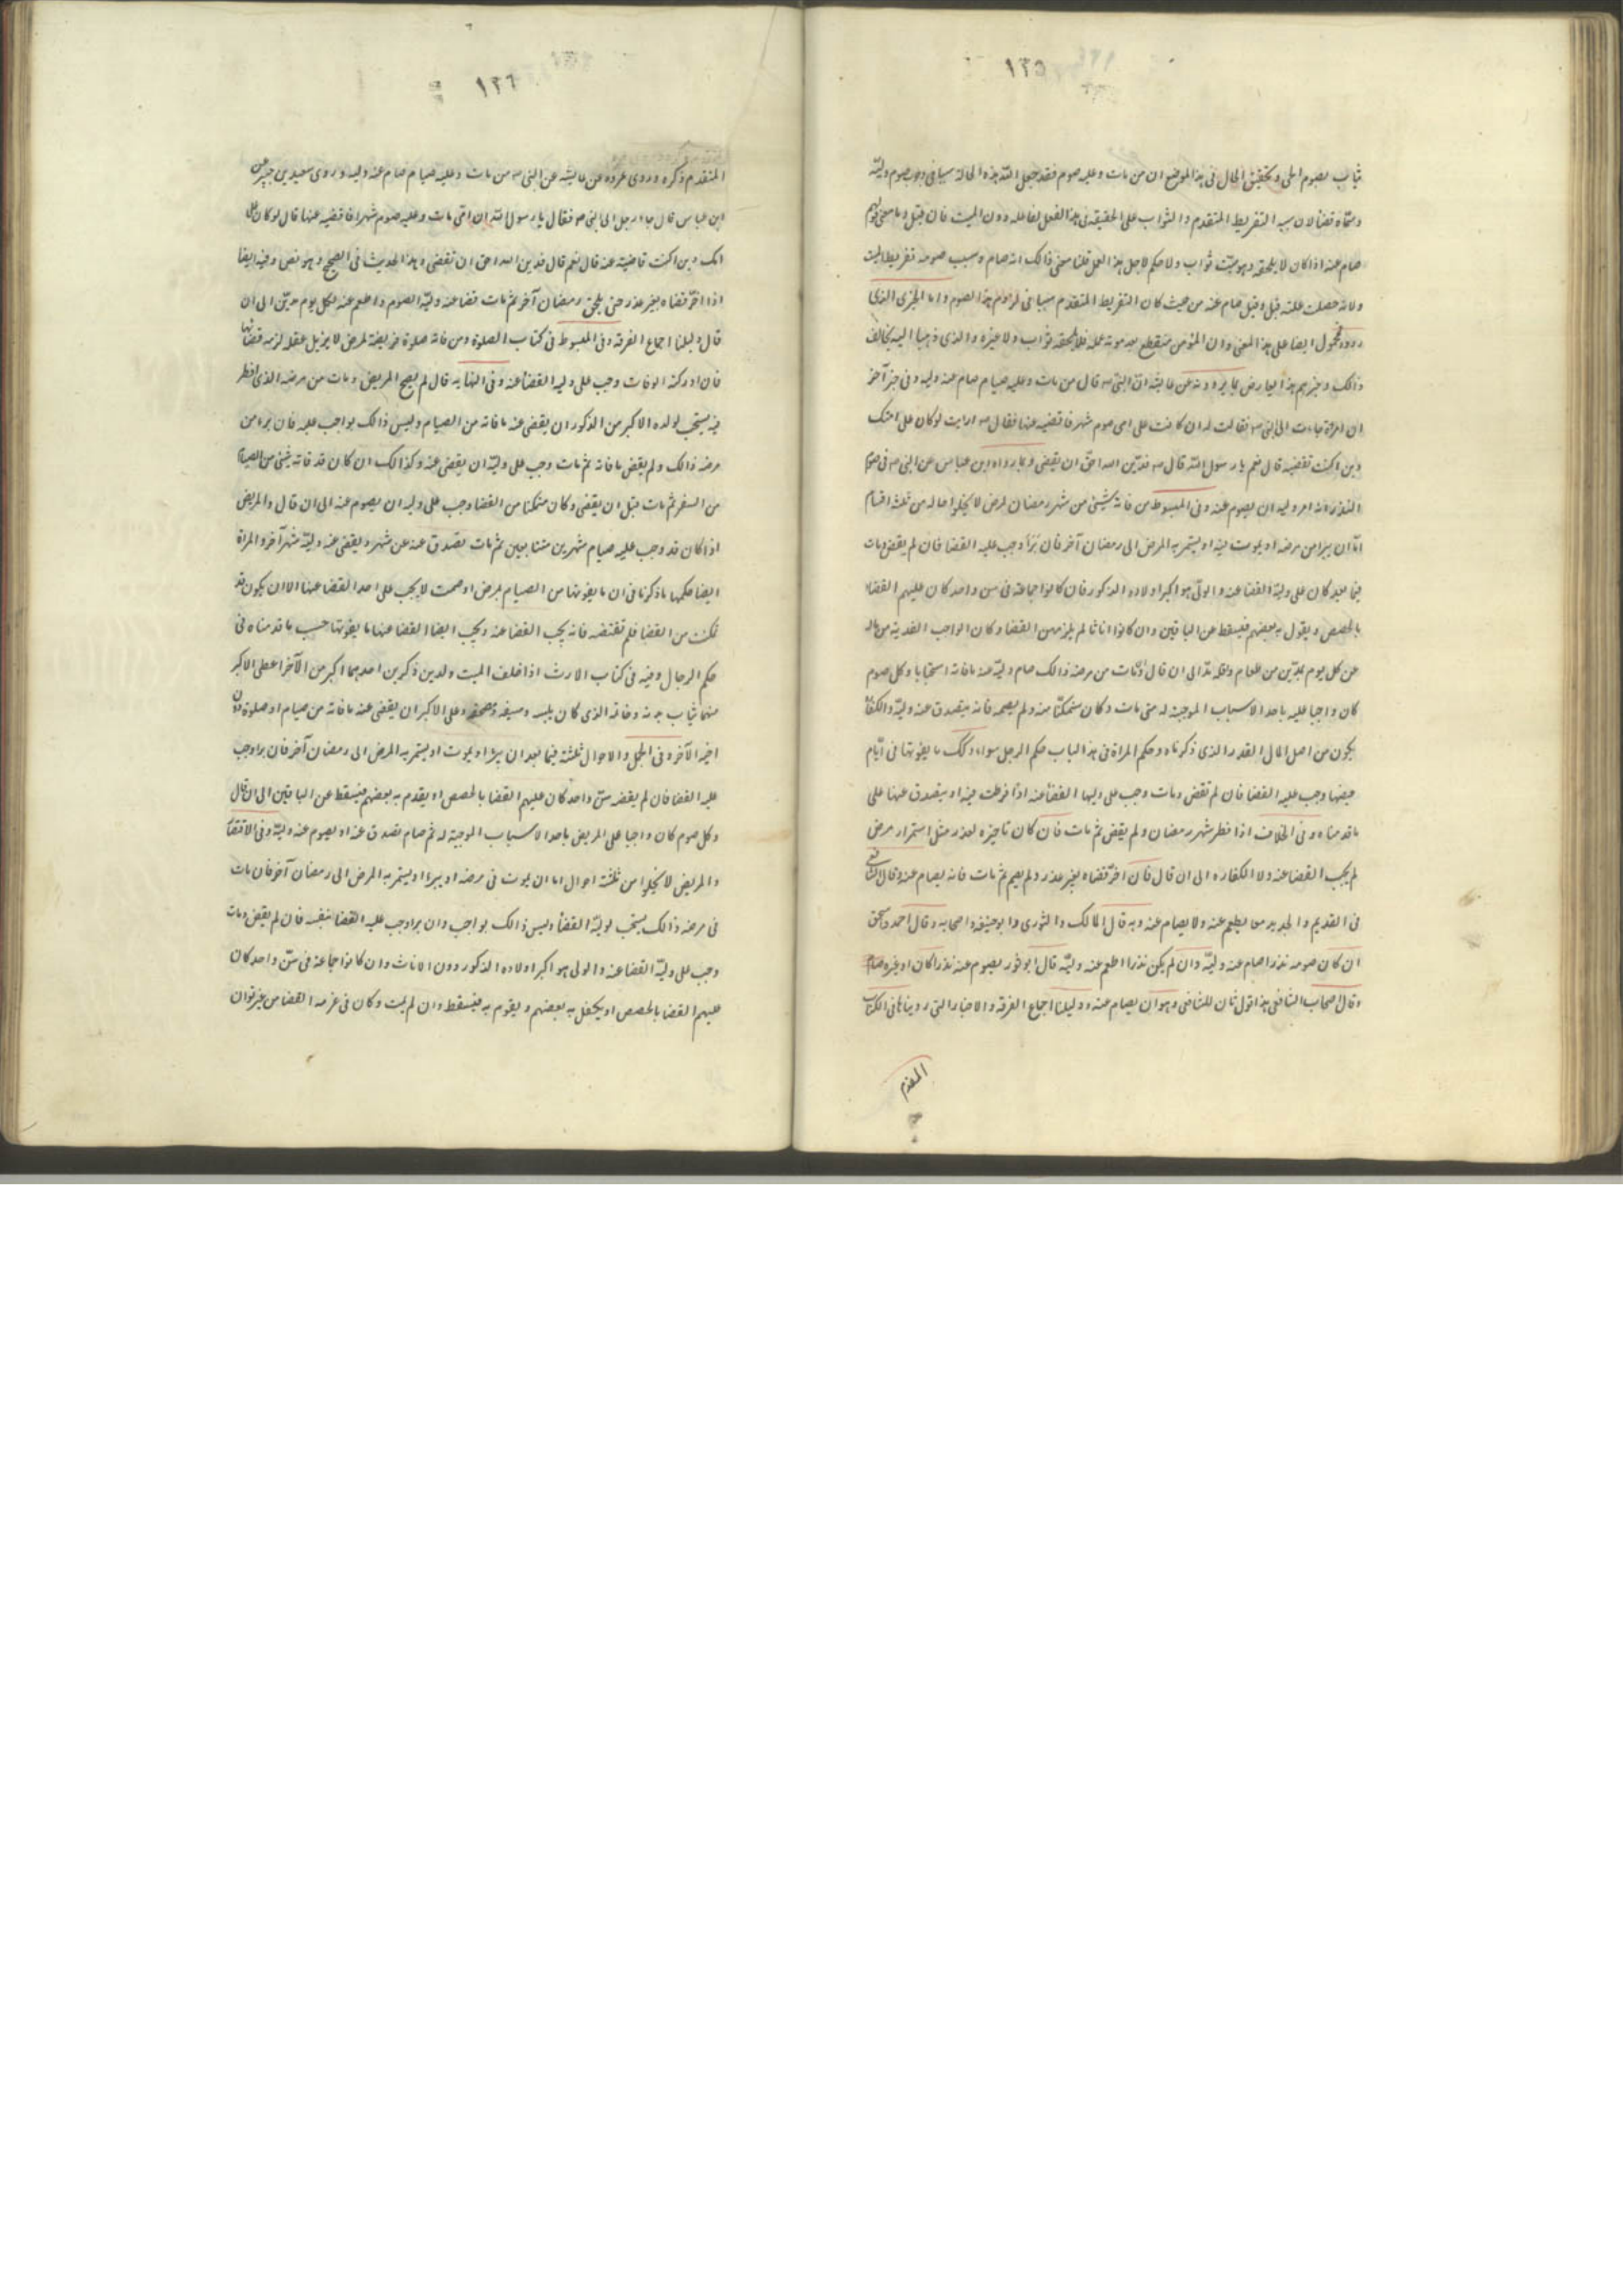 ١٢٥
يثاب بصوم الحى وتحقيق الحال فى هذا الموضع ان من مات وعليه صوم فقد جعل الله هذه الحالة سببا فى وجوب صوم وليّه
وسمّاه قضأ لان سببه التفريط المتقدم والثواب على الحقيقه فى هذا الفعل لفاعله دون الميت فان قيل وما معنى قولهم
صام عنه اذا كان لا يلحقه وهو ميّت ثواب ولا حكم لاجل هذا العمل قلنا معنى ذالك انه صام وسبب صومه تفريط الميت
ولانه حصلت علته قيل وقيل صام عنه من حيث كان التفريط المتقدم سببا فى لزوم هذا الصوم واما الخبر الذى
رووه فمحمول ايضا على هذا المعنى وان المؤمن ينقطع بعد موته عمله فلا يلحقه ثواب ولا غيره والذى ذهبنا اليه لا يخالف
ذالك وخبرهم هذا يعارض بما يروونه عن عايشه انّ النبى ص قال من مات وعليه صيام صام عنه وليه وفى خبر آخر
ان امرأة جاءت الى النبى ص فقالت له ان كانت على امى صوم شهر فاقضيه عنها فقال ص ارايت لو كان على امك
دين اكنت تقضيه قال نعم يا رسول الله قال ص فدين الله احق ان يقضى وبما رواه ابن عباس عن النبى ص فى صوم
النذر انه امر وليه ان يصوم عنه وفى المبسوط من فاته شيئ من شهر رمضان لمرض لا يخلوا حاله من ثلثه اقسام
امّا ان يبرا من مرضه او يموت فيه او يستمر به المرض الى رمضان آخر فان برأ وجب عليه القضا فان لم يقض ومات
فيما بعد كان على وليّه القضا عنه والولّى هو اكبر اولاده الذكور فان كانوا جماعة فى سن واحد كان عليهم القضاء
بالحصص ويقول به بعضهم فيسقط عن الباقين وان كانوا اناثا لم يلزمهن القضا وكان الواجب الفدية من ماله
عن كل يوم بمدّين من طعام واقله مدّ الى ان قال وان مات من مرضه ذالك صام وليّه عنه ما فاته استحبابا وكل صوم
كان واجبا عليه باحد الاسباب الموجبة له متى مات وكان متمكنّا منه ولم يصمه فانه يتصدق عنه وليّه والكفّارة
يكون من اصل المال القدر الذى ذكرناه وحكم المراة فى هذا الباب حكم الرجل سواء وكك ما يفوتها فى ايّام
حيضها وجب عليه القضا فان لم تقض ومات وجب على وليها القضا عنه اذا فرطت فيه او يتصدق عنها على
ما قدمناه وفى الخلاف اذا فطر شهر رمضان ولم يقض ثم مات فان كان تاخيره لعذر مثل استمرار مرض
لم يجب القضا عنه ولا الكفاره الى ان قال فان اخّر قضاه بغير عذر ولم يصم ثم مات فانه يصام عنه وقال الشافعى
فى القديم والجديد معا يطعم عنه ولا يصام عنه وبه قال المالك والثورى وابو حنيفه واصحابه وقال احمد واسحق
ان كان صومه نذرا صام عنه وليّه وان لم يكن نذرا اطعم عنه وليّه قال ابو ثور يصوم عنه نذرا كان او غيره صام
وقال اصحاب الشافعى هذا قول ثان للشافعى وهو ان يصام عنه ودليلنا اجماع الفرقه والاخبار التى رويناها فى الكتاب
المتقدم
١٢٦
المتقدم ذكره وروى عروه عن عايشه عن النبى ص من مات وعليه صيام صام عنه وليه وروى سعيد بن جبير عن
ابن عباس قال جاء رجل الى النبى ص فقال يا رسول الله ان امّى مات وعليه صوم شهر افاقضيه عنها قال لو كان على
امك دين اكنت قاضيه عنه قال نعم قال فدين الله احق ان تقضى وهذا الحديث فى الصحيح وهو نص وفيه ايضا
اذا اخّر قضاه بغير عذر حتى يلحق رمضان آخر ثم مات قضا عنه وليّه الصوم واطعم عنه لكل يوم مدين الى ان
قال دليلنا اجماع الفرقه وفى المبسوط فى كتاب الصلوة ومن فاته صلوة فريضة لمرض لا يزيل عقله لزمه قضائها
فان ادركته الوفات وجب على وليه القضا عنه وفى النهايه قال لم يصح المريض ومات من مرضه الذى افطر
فيه يستحب لولده الاكبر من الذكور ان يقضى عنه ما فاته من الصيام وليس ذالك بواجب عليه فان برء من
مرضه ذالك ولم يقض ما فاته ثم مات وجب على وليّه ان يقضى عنه وكذالك ان كان قد فاته شيئ من الصيام
من السفر ثم مات قبل ان يقضى وكان متمكنا من القضا وجب على وليه ان يصوم عنه الى ان قال والمريض
اذا كان قد وجب عليه صيام شهرين متتابعين ثم مات تصدق عنه عن شهر ويقضى عنه وليّه شهر آخر والمراة
ايضا حكمها ما ذكرنا فى ان ما يفوتها من الصيام لمرض او طمث لا يجب على احد القضا عنها الا ان يكون قد
تمكنت من القضا فلم تقضه فانه يجب القضا عنه ويجب ايضا القضا عنها ما يفوتها حسب ما قدمناه فى
حكم الرجال وفيه فى كتاب الارث اذا خلف الميت ولدين ذكرين احدهما اكبر من الآخر اعطى الاكبر
منهما ثياب بدنه وخاتمه الذى كان يلبسه وسيفه ومصحفه وعلى الاكبر ان يقضى عنه ما فاته من صيام او صلوة دون
اخيه الآخر وفى الجمل والاحوال ثلثة فيما بعد ان يبرا او يموت او يستمر به المرض الى رمضان آخر فان برا وجب
عليه القضا فان لم يقضه سنّ واحد كان عليهم القضا بالحصص او يقدم به بعضهم فيسقط عن الباقين الى ان قال
وكل صوم كان واجبا على المريض باحد الاسباب الموجبة له ثم صام تصدق عنه او يصوم عنه وليّه وفى الاقتصاد
والمريض لا يخلوا من ثلثة احوال اما ان يموت فى مرضه او يبرا او يستمر به المرض الى رمضان آخر فان مات
فى مرضه ذالك يستحب لوليّه القضأ وليس ذالك بواجب وان برا وجب عليه القضا بنفسه فان لم يقض ومات
وجب على وليّه القضا عنه والولى هو اكبر اولاده الذكور دون الاناث وان كانوا جماعة فى سنّ واحد كان
عليهم القضا بالحصص او يكفل به بعضهم ويقوم به فيسقط وان لم يمت وكان فى عزمه القضا من غير توان